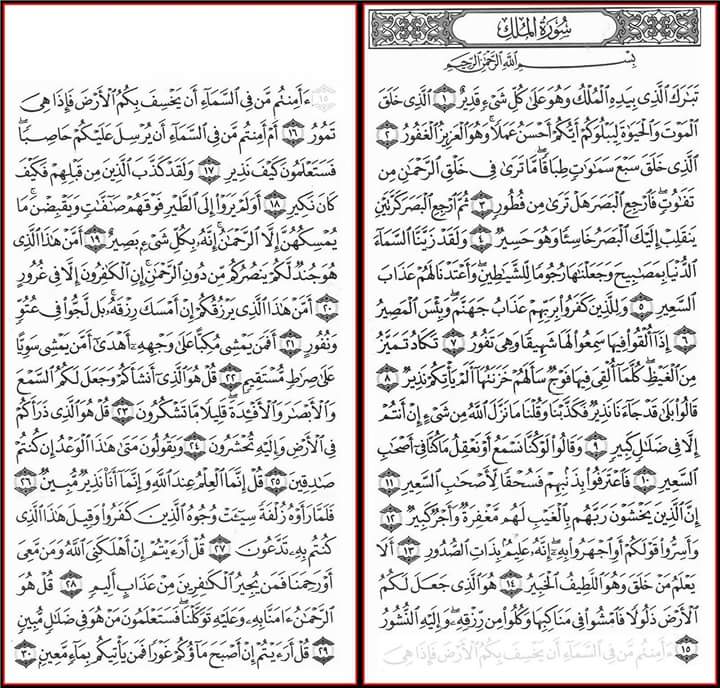 سُورَةُ الْمُلْكِ
بِسْمِ اللَّهِ الرَّحْمَٰنِ الرَّحِيمِ
تَبَارَكَ الَّذِي بِيَدِهِ الْمُلْكُ وَهُوَ عَلَىٰ كُلِّ شَيْءٍ قَدِيرٌ ١ الَّذِي خَلَقَ
الْمَوْتَ وَالْحَيَاةَ لِيَبْلُوَكُمْ أَيُّكُمْ أَحْسَنُ عَمَلًا ۚ وَهُوَ الْعَزِيزُ الْغَفُورُ ٢
الَّذِي خَلَقَ سَبْعَ سَمَاوَاتٍ طِبَاقًا ۖ مَا تَرَىٰ فِي خَلْقِ الرَّحْمَٰنِ مِنْ
تَفَاوُتٍ ۖ فَارْجِعِ الْبَصَرَ هَلْ تَرَىٰ مِنْ فُطُورٍ ٣ ثُمَّ ارْجِعِ الْبَصَرَ كَرَّتَيْنِ
يَنْقَلِبْ إِلَيْكَ الْبَصَرُ خَاسِئًا وَهُوَ حَسِيرٌ ٤ وَلَقَدْ زَيَّنَّا السَّمَاءَ
الدُّنْيَا بِمَصَابِيحَ وَجَعَلْنَاهَا رُجُومًا لِلشَّيَاطِينِ ۖ وَأَعْتَدْنَا لَهُمْ عَذَابَ
السَّعِيرِ ٥ وَلِلَّذِينَ كَفَرُوا بِرَبِّهِمْ عَذَابُ جَهَنَّمَ ۖ وَبِئْسَ الْمَصِيرُ
٦ إِذَا أُلْقُوا فِيهَا سَمِعُوا لَهَا شَهِيقًا وَهِيَ تَفُورُ ٧ تَكَادُ تَمَيَّزُ
مِنَ الْغَيْظِ ۖ كُلَّمَا أُلْقِيَ فِيهَا فَوْجٌ سَأَلَهُمْ خَزَنَتُهَا أَلَمْ يَأْتِكُمْ نَذِيرٌ ٨
قَالُوا بَلَىٰ قَدْ جَاءَنَا نَذِيرٌ فَكَذَّبْنَا وَقُلْنَا مَا نَزَّلَ اللَّهُ مِنْ شَيْءٍ إِنْ أَنْتُمْ
إِلَّا فِي ضَلَالٍ كَبِيرٍ ٩ وَقَالُوا لَوْ كُنَّا نَسْمَعُ أَوْ نَعْقِلُ مَا كُنَّا فِي أَصْحَابِ
السَّعِيرِ ١٠ فَاعْتَرَفُوا بِذَنْبِهِمْ فَسُحْقًا لِأَصْحَابِ السَّعِيرِ ١١
إِنَّ الَّذِينَ يَخْشَوْنَ رَبَّهُمْ بِالْغَيْبِ لَهُمْ مَغْفِرَةٌ وَأَجْرٌ كَبِيرٌ ١٢
وَأَسِرُّوا قَوْلَكُمْ أَوِ اجْهَرُوا بِهِ ۖ إِنَّهُ عَلِيمٌ بِذَاتِ الصُّدُورِ ١٣ أَلَا
يَعْلَمُ مَنْ خَلَقَ وَهُوَ اللَّطِيفُ الْخَبِيرُ ١٤ هُوَ الَّذِي جَعَلَ لَكُمُ
الْأَرْضَ ذَلُولًا فَامْشُوا فِي مَنَاكِبِهَا وَكُلُوا مِنْ رِزْقِهِ ۖ وَإِلَيْهِ النُّشُورُ
١٥ ءَأَمِنْتُمْ مَنْ فِي السَّمَاءِ أَنْ يَخْسِفَ بِكُمُ الْأَرْضَ فَإِذَا هِيَ
١٥ ءَأَمِنْتُمْ مَنْ فِي السَّمَاءِ أَنْ يَخْسِفَ بِكُمُ الْأَرْضَ فَإِذَا هِيَ
تَمُورُ ١٦ أَمْ أَمِنْتُمْ مَنْ فِي السَّمَاءِ أَنْ يُرْسِلَ عَلَيْكُمْ حَاصِبًا ۖ
فَسَتَعْلَمُونَ كَيْفَ نَذِيرِ ١٧ وَلَقَدْ كَذَّبَ الَّذِينَ مِنْ قَبْلِهِمْ فَكَيْفَ
كَانَ نَكِيرِ ١٨ أَوَلَمْ يَرَوْا إِلَى الطَّيْرِ فَوْقَهُمْ صَافَّاتٍ وَيَقْبِضْنَ ۚ مَا
يُمْسِكُهُنَّ إِلَّا الرَّحْمَٰنُ ۚ إِنَّهُ بِكُلِّ شَيْءٍ بَصِيرٌ ١٩ أَمَّنْ هَٰذَا الَّذِي
هُوَ جُنْدٌ لَكُمْ يَنْصُرُكُمْ مِنْ دُونِ الرَّحْمَٰنِ ۚ إِنِ الْكَافِرُونَ إِلَّا فِي غُرُورٍ
٢٠ أَمَّنْ هَٰذَا الَّذِي يَرْزُقُكُمْ إِنْ أَمْسَكَ رِزْقَهُ ۚ بَلْ لَجُّوا فِي عُتُوٍّ
وَنُفُورٍ ٢١ أَفَمَنْ يَمْشِي مُكِبًّا عَلَىٰ وَجْهِهِ أَهْدَىٰ أَمَّنْ يَمْشِي سَوِيًّا
عَلَىٰ صِرَاطٍ مُسْتَقِيمٍ ٢٢ قُلْ هُوَ الَّذِي أَنْشَأَكُمْ وَجَعَلَ لَكُمُ السَّمْعَ
وَالْأَبْصَارَ وَالْأَفْئِدَةَ ۖ قَلِيلًا مَا تَشْكُرُونَ ٢٣ قُلْ هُوَ الَّذِي ذَرَأَكُمْ
فِي الْأَرْضِ وَإِلَيْهِ تُحْشَرُونَ ٢٤ وَيَقُولُونَ مَتَىٰ هَٰذَا الْوَعْدُ إِنْ كُنْتُمْ
صَادِقِينَ ٢٥ قُلْ إِنَّمَا الْعِلْمُ عِنْدَ اللَّهِ وَإِنَّمَا أَنَا نَذِيرٌ مُبِينٌ ٢٦
فَلَمَّا رَأَوْهُ زُلْفَةً سِيئَتْ وُجُوهُ الَّذِينَ كَفَرُوا وَقِيلَ هَٰذَا الَّذِي
كُنْتُمْ بِهِ تَدَّعُونَ ٢٧ قُلْ أَرَأَيْتُمْ إِنْ أَهْلَكَنِيَ اللَّهُ وَمَنْ مَعِيَ
أَوْ رَحِمَنَا فَمَنْ يُجِيرُ الْكَافِرِينَ مِنْ عَذَابٍ أَلِيمٍ ٢٨ قُلْ هُوَ
الرَّحْمَٰنُ ءَامَنَّا بِهِ وَعَلَيْهِ تَوَكَّلْنَا ۖ فَسَتَعْلَمُونَ مَنْ هُوَ فِي ضَلَالٍ مُبِينٍ
٢٩ قُلْ أَرَأَيْتُمْ إِنْ أَصْبَحَ مَاؤُكُمْ غَوْرًا فَمَنْ يَأْتِيكُمْ بِمَاءٍ مَعِينٍ ٣٠